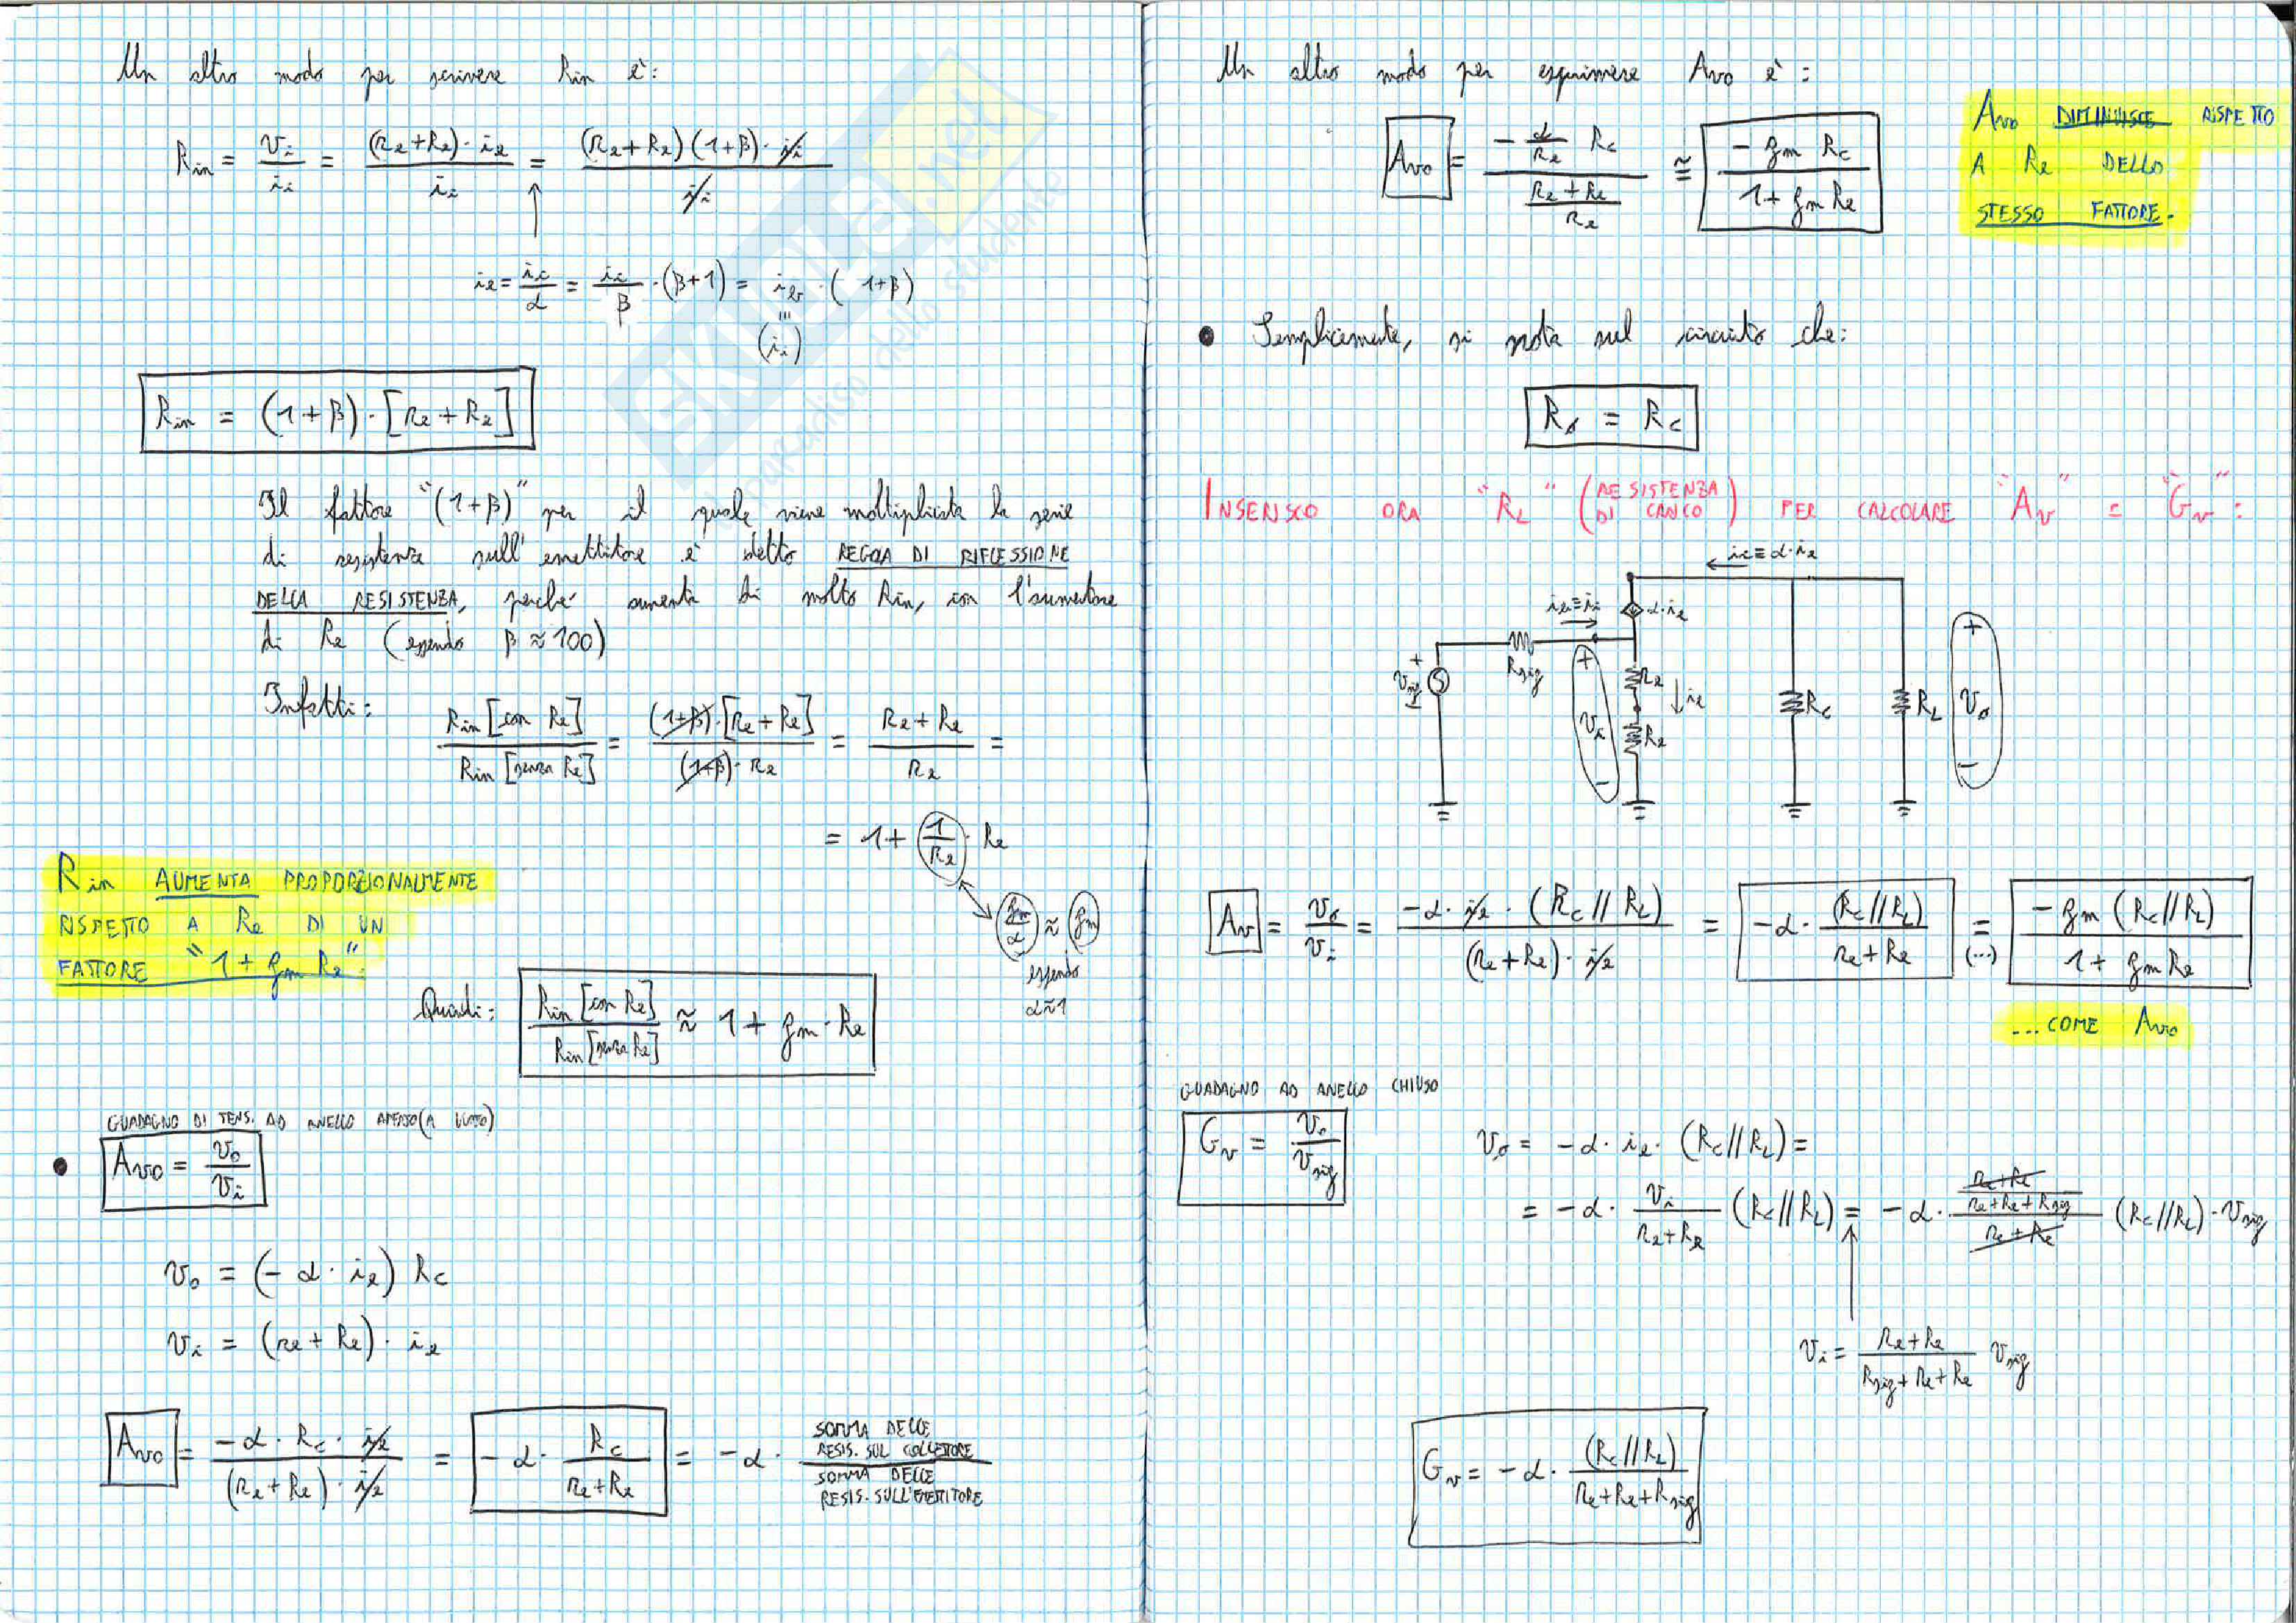 Un altro modo per scrivere Rin è:
Rin = vi/ii = (re+Re)·ie/ii = (re+Re)(1+β)·ii/ii
ie = ic/α = ic/β · (β+1) = ib · (1+β)
(ii)
Rin = (1+β)·[re+Re]
Il fattore "(1+β)" per il quale viene moltiplicata la serie
di resistenze sull'emettitore è detto REGOLA DI RIFLESSIONE
DELLA RESISTENZA, perché aumenta di molto Rin, con l'aumentare
di Re (essendo β ≈ 100)
Infatti: Rin [con Re]/Rin [senza Re] = (1+β)·[re+Re]/(1+β)·re = re+Re/re =
= 1 + 1/re · Re
gm/α ≈ gm
essendo
α≈1
Rin AUMENTA PROPORZIONALMENTE
RISPETTO A Re DI UN
FATTORE "1+gmRe".
Quindi: Rin [con Re]/Rin [senza Re] ≈ 1 + gm·Re
GUADAGNO DI TENS. AD ANELLO APERTO (A VUOTO)
• Avo = vo/vi
vo = (-α·ie) Rc
vi = (re+Re)·ie
Avo = -α·Rc·ie/(re+Re)·ie = -α·Rc/re+Re = -α· SOMMA DELLE RESIS. SUL COLLETTORE/SOMMA DELLE RESIS. SULL'EMETTITORE
Un altro modo per esprimere Avo è:
Avo = -α/re Rc / re+Re/re ≅ -gm Rc/1+gmRe
Avo DIMINUISCE RISPETTO
A Re DELLO
STESSO FATTORE.
• Semplicemente, si nota sul circuito che:
Ro = Rc
INSERISCO ORA "RL" (RESISTENZA DI CARICO) PER CALCOLARE "Av" E "Gv":
ic≡α·ie
ib≡ii
α·ie
+
vsig
Rsig
+
vi
-
re
ie
Re
Rc
RL
+
vo
-
Av = vo/vi = -α·ie·(Rc//RL)/(re+Re)·ie = -α·(Rc//RL)/re+Re = (...) -gm(Rc//RL)/1+gmRe
...COME Avo
GUADAGNO AD ANELLO CHIUSO
Gv = vo/vsig
vo = -α·ie·(Rc//RL) =
= -α·vi/re+Re (Rc//RL) = -α· re+Re/re+Re+Rsig / re+Re (Rc//RL)·vsig
vi = re+Re/Rsig+re+Re vsig
Gv = -α·(Rc//RL)/re+Re+Rsig